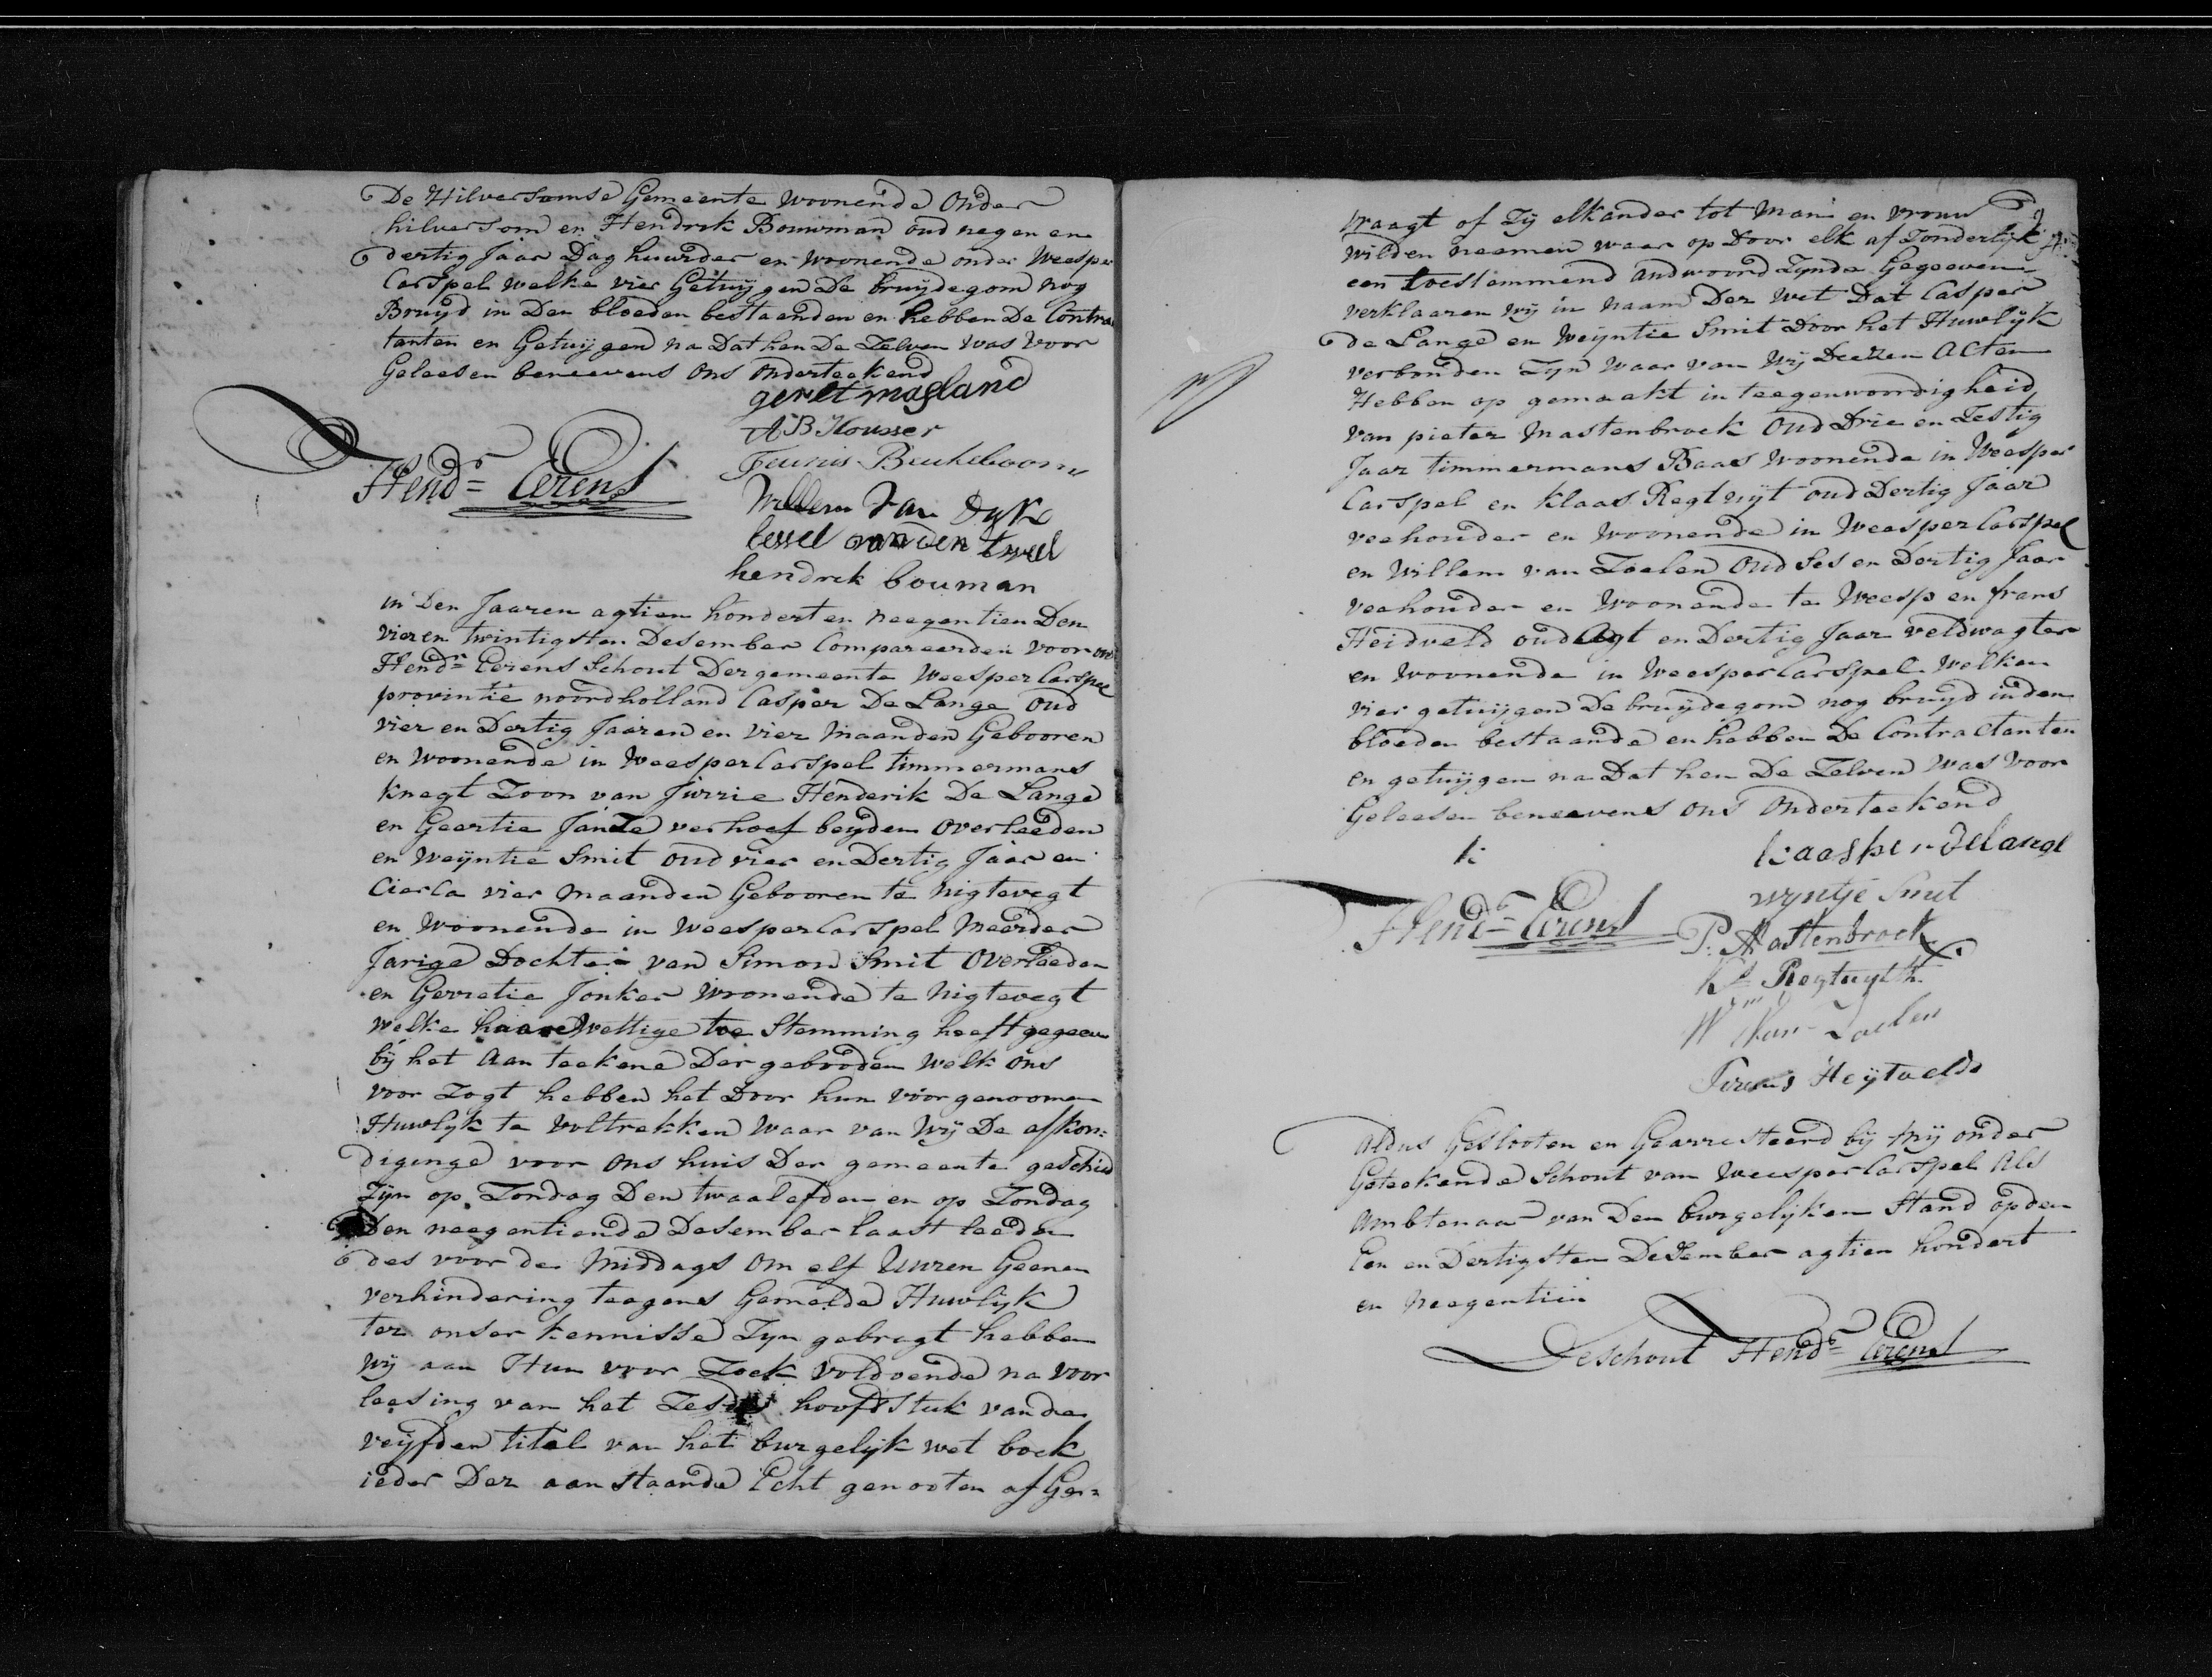 De Hilversomse Gemeente woonende Onder
hilversom en Hendrik Bouwman oud negen en
dertig Jaar Dag huurder en woonende onder Weesper
Carspel welke vier Getuijgen De bruijdegom nog
Bruijd in Den bloeden bestaanden en hebben De Contrac
tanten en Getuijgen na Dat hen De Zelven was voor
Geleesen beneevens ons onderteekend
gerret magland
AB Housser
Teunis Beukeboom
Hendr Eerens
Willem van Dyk
tessel van den twel
hendrik bouman
in Den Jaaren agtien hondert en neegentien Den
vier en twintigsten Desember Compareerden voor ons
Hendr Eerens Schout Der gemeente Weesper Carspel
provintie noordholland Casper De Lange oud
vier en Dertig Jaaren en vier maanden Gebooren
en woonende in Weesper Carspel timmermans
knegt Zoon van Jurrie Henderik De Lange
en Geertie Janse verhoef beijden overleeden
en Weijntie Smit oud vier en Dertig Jaar en
Cierca vier maanden Gebooren te nigtevegt
en woonende in Weesper Carspel meerder
Jarige Dochter van Simon Smit Overleeden
en Gerretie Jonker woonende te Nigtevegt
welke haare wettige toe stemming heeft gegeeven
bij het Aan teekene Der gebooden welk ons
voor Zogt hebben het Door hun voorgenoomen
Huwlyk te voltrekken waar van Wij De afkon=
diginge voor ons huis Der gemeente geschied
Zijn op Zondag Den twaalefden en op Zondag
Den neegentiende Desember laast leeden
des voor de middags om elf uuren Geenen
verhindering teegens Gemelde Huwlijk
ter onser kennisse Zijn gebragt hebben
wij aan Hun voor Zoek voldoende na voor
leesing van het Zesde hoofdstuk vande
veijfden titel van het burgelijk wet boek
ieder Der aanstaande Echt genooten af Ge=
vraagt of Zij elkander tot man en vrouw
wilden neemen waar op Door elk af Zonderlijk
een toestemmend andwoord Zynde Gegeeven
verklaaren wij in naam Der wet Dat Casper
de Lange en Weijntie Smit Door het Huwlijk
verbonden Zijn waar van Wij Deezen Acten
Hebben op gemaakt in teegenwoordigheid
van pieter mastenbroek Oud Drie en Zestig
Jaar timmermans Baas woonende in Weesper
Carspel en klaas Regtuijt oud Dertig Jaar
veehouder en woonende in Weesper Carspel
en Willem van Zoelen oud ses en Dertig Jaar
veehouder en woonende te Weesp en frans
Heidveld oud Agt en Dertig Jaar veldwagter
en woonende in Weesper Carspel welken
vier getuijgen De bruijdegom nog bruijd inden
bloeden bestaande en hebben De Contractanten
en getuijgen na Dat hen De Zelven was voor
Geleesen beneevens ons Onderteekend
k kaasper delange
wyntje Smit
Hendr Eerens P. Mastenbroek
Ks Regtuyt
Wm van Zoelen
Frans Heytveld
Aldus Geslooten en Gearresteerd bij Mij onder
Geteekende Schout van Weesper Carspel Als
Ambtenaar van Den burgelijken Stand op den
Een en Dertigsten Desember agtien hondert
en neegentien
De Schout Hendr Eerens